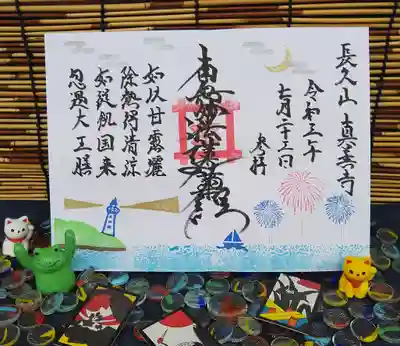 長久山
令和三年
七月二十三日
参拝
南無妙法蓮華経
如以甘露灑
除熱得清涼
如従飢国来
忽遇大王膳